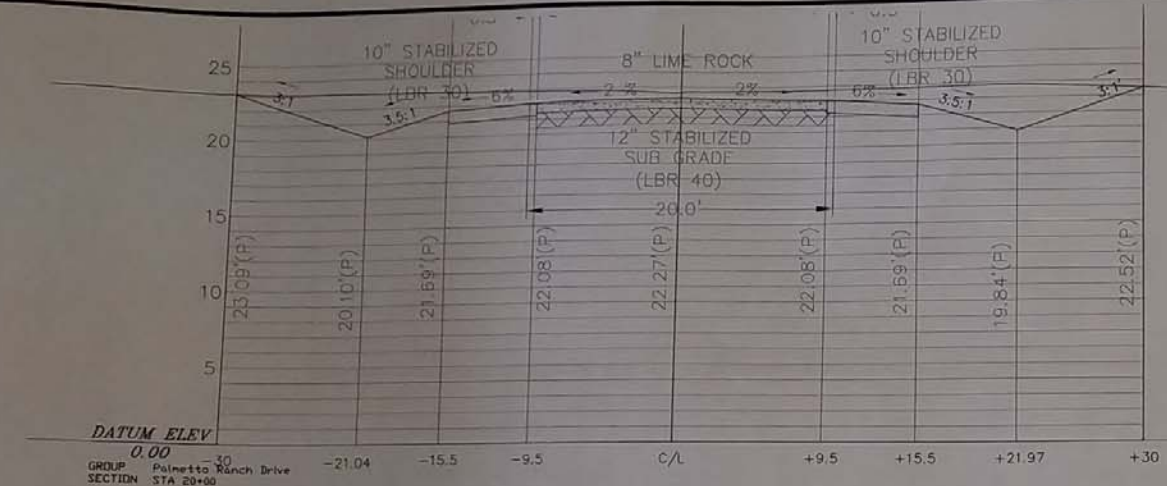 10" STABILIZED
SHOULDER
(LBR 30)
8" LIME ROCK
10" STABILIZED
SHOULDER
(LBR 30)
25
3:1
3.5:1
6%
2 %
2%
6%
3.5:1
3:1
20
12" STABILIZED
SUB GRADE
(LBR 40)
15
20.0'
23.09'(P)
20.10'(P)
21.69'(P)
22.08'(P)
22.27'(P)
22.08'(P)
21.69'(P)
19.84'(P)
22.52'(P)
10
5
DATUM ELEV
0.00
-30
-21.04
-15.5
-9.5
C/L
+9.5
+15.5
+21.97
+30
GROUP Palmetto Ranch Drive
SECTION STA 20+00